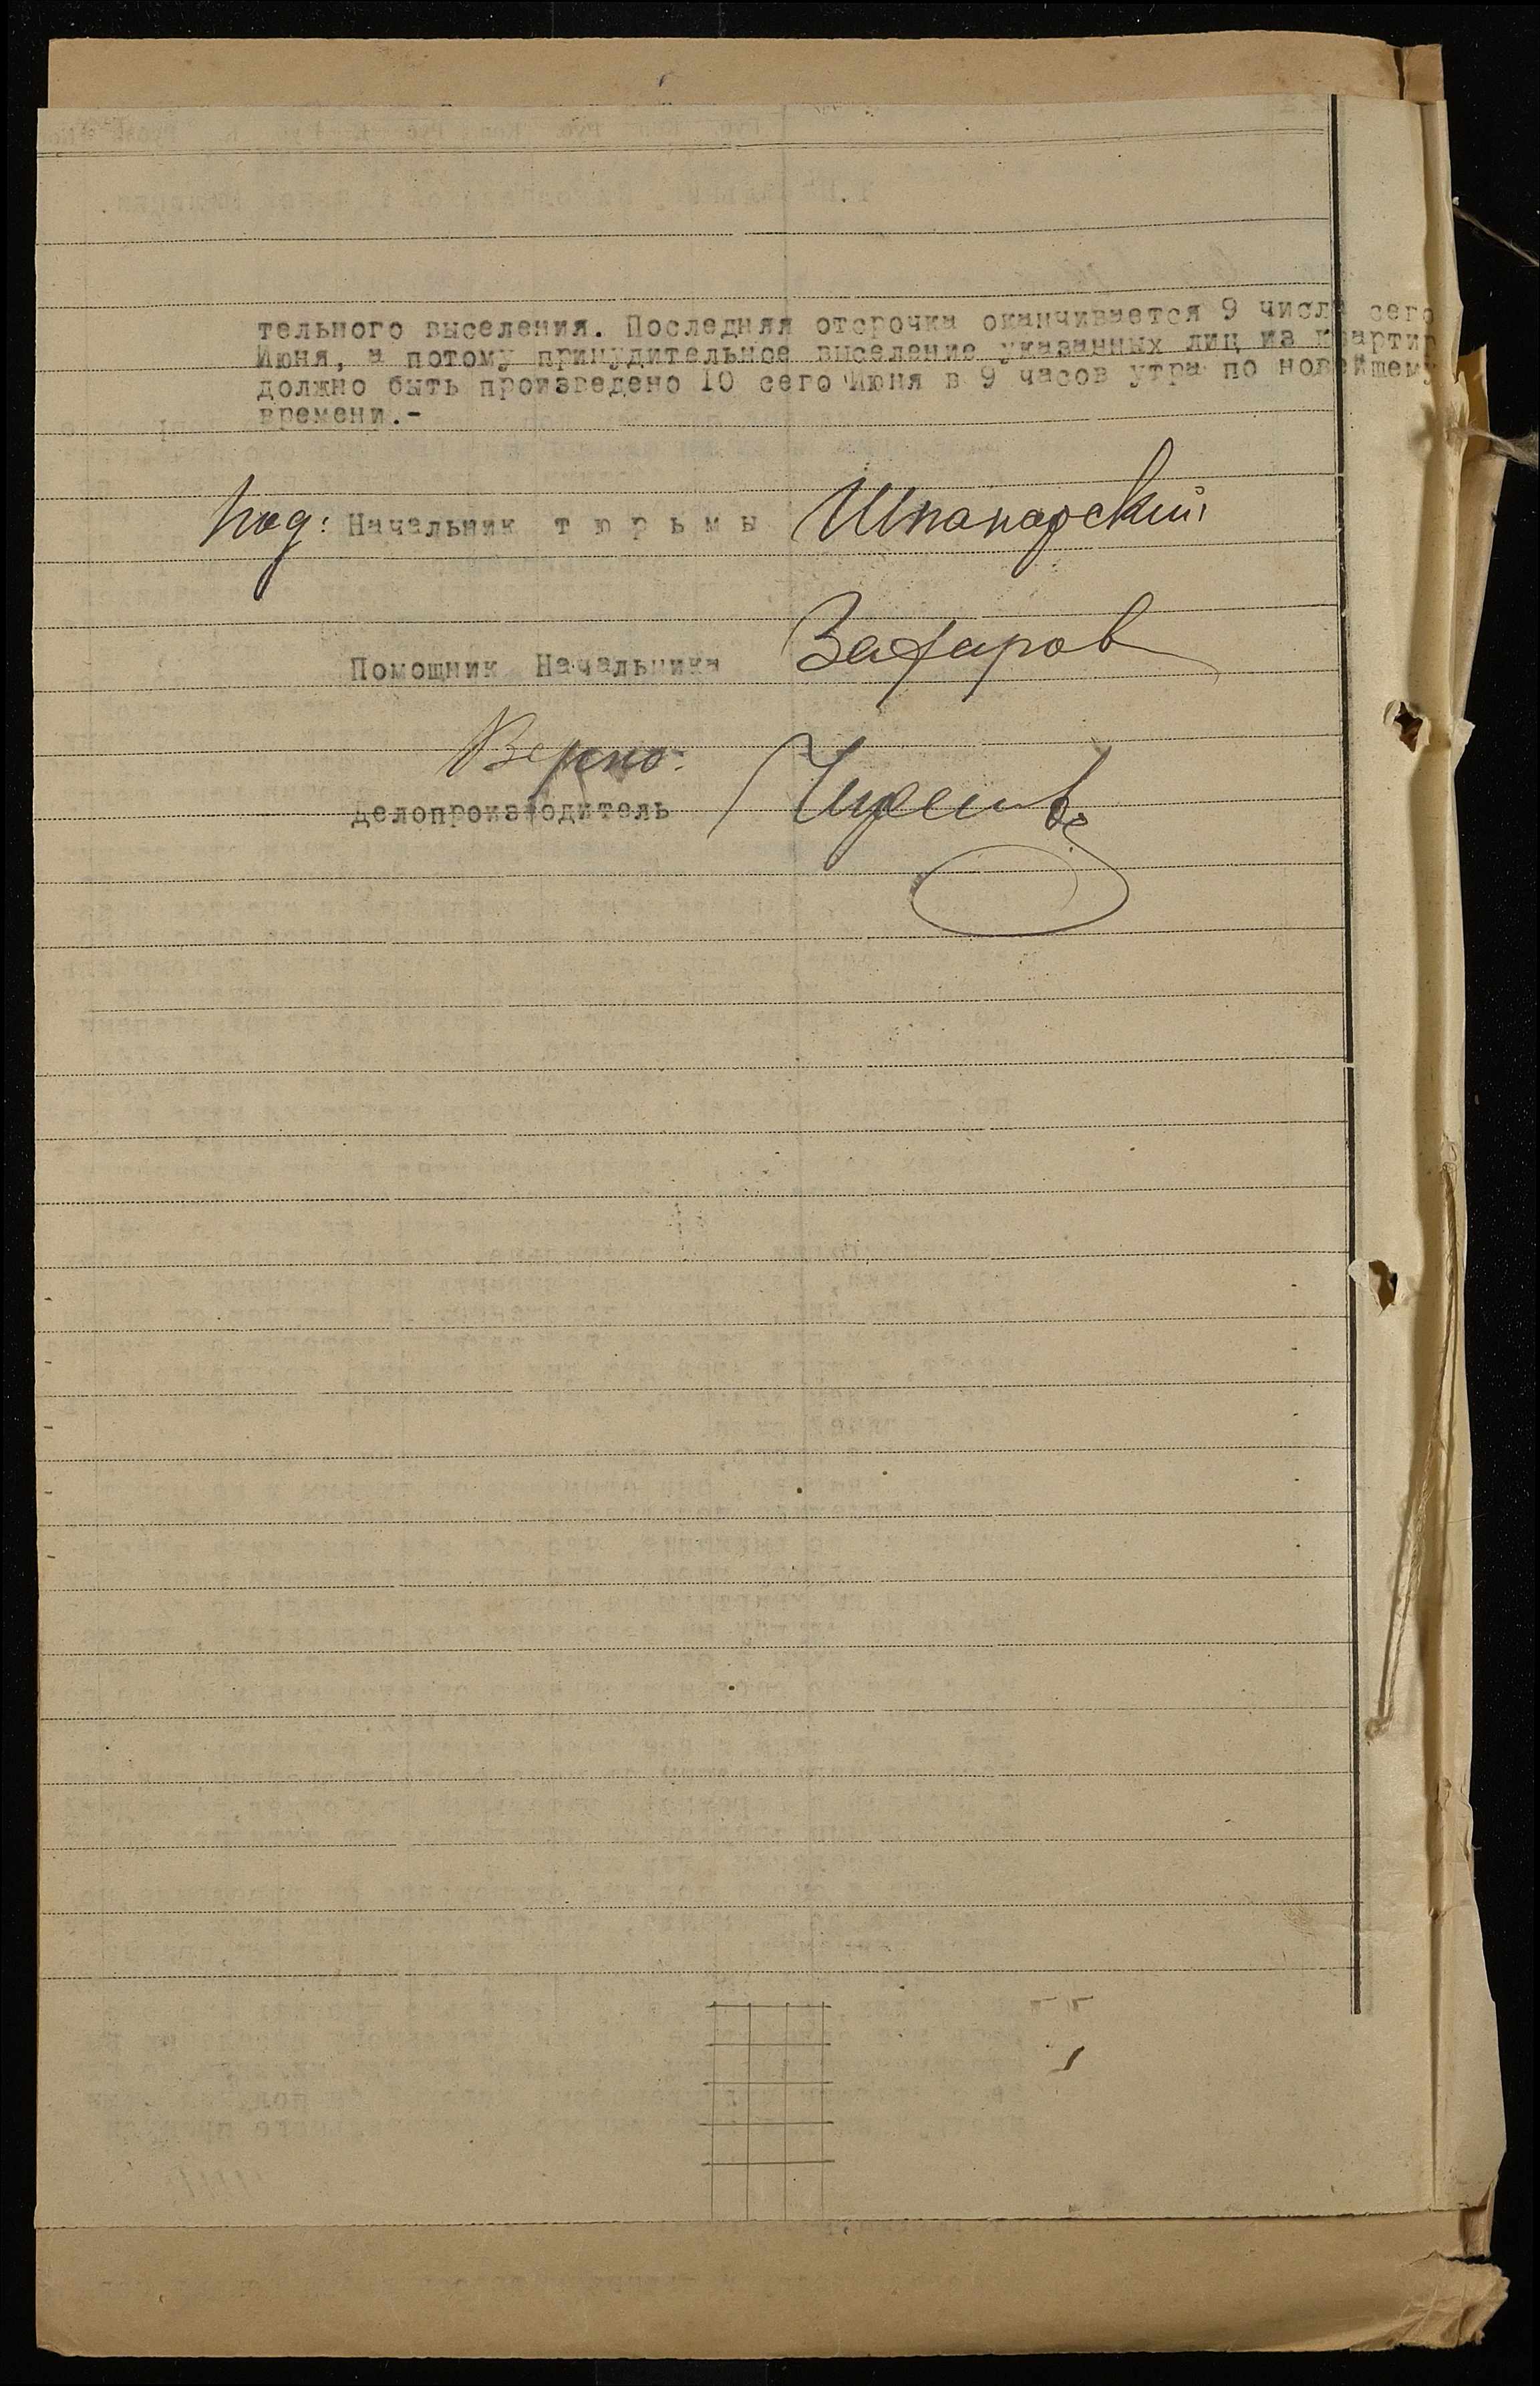 тельного выселения. Последняя отсрочка оканчивается 9 числа сего
Июня, а потому принудительное выселение указанных лиц из квартир
должно быть произведено 10 сего Июня в 9 часов утра по новейшему
времени.-
под: Начальник тюрьмы Шпанарский
Помощник Начальника Захаров
Верно:
делопроизводитель